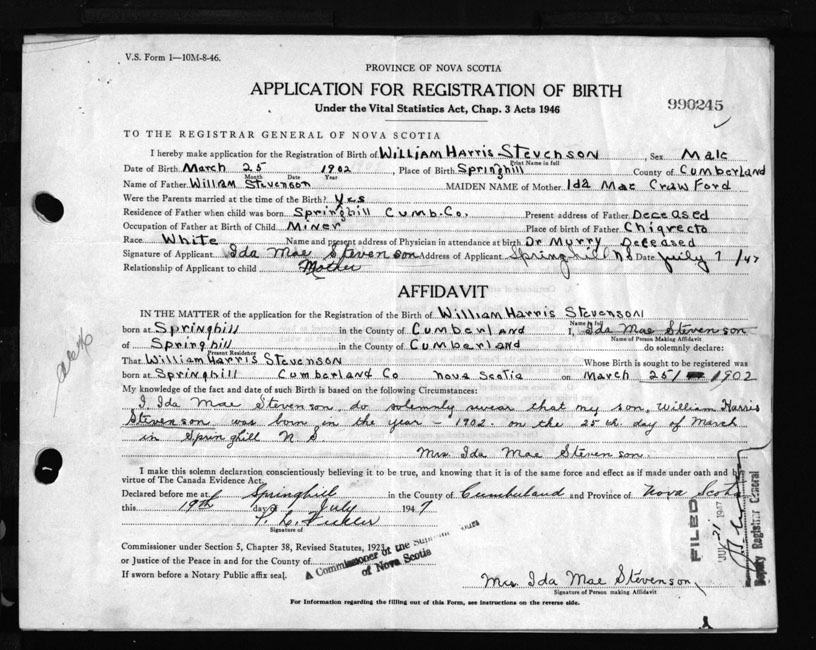 V.S. Form 1—10M-8-46.
PROVINCE OF NOVA SCOTIA
APPLICATION FOR REGISTRATION OF BIRTH
990245
Under the Vital Statistics Act, Chap. 3 Acts 1946
TO THE REGISTRAR GENERAL OF NOVA SCOTIA
I hereby make application for the Registration of Birth of William Harris Stevenson, Sex Male
Print Name in full
Date of Birth March 25 1902, Place of Birth Springhill County of Cumberland
Month Date Year
Name of Father William Stevenson MAIDEN NAME of Mother Ida Mae Crawford
Were the Parents married at the time of the Birth? Yes
Residence of Father when child was born Springhill Cumb. Co. Present address of Father Deceased
Occupation of Father at Birth of Child Miner Place of birth of Father Chignecto
Race White Name and present address of Physician in attendance at birth Dr Murry Deceased
Signature of Applicant Ida Mae Stevenson Address of Applicant Springhill NS Date July 7/47
Relationship of Applicant to child Mother
AFFIDAVIT
IN THE MATTER of the application for the Registration of the Birth of William Harris Stevenson
Name in full
born at Springhill in the County of Cumberland I, Ida Mae Stevenson
Name of Person Making Affidavit
of Springhill in the County of Cumberland do solemnly declare:
Present Residence
That William Harris Stevenson Whose Birth is sought to be registered was
born at Springhill Cumberland Co Nova Scotia on March 25/ 1902
My knowledge of the fact and date of such Birth is based on the following Circumstances:
I Ida Mae Stevenson do solemnly swear that my son, William Harris
Stevenson was born in the year - 1902. on the 25th. day of March
in Springhill N S.
Mrs. Ida Mae Stevenson.
I make this solemn declaration conscientiously believing it to be true, and knowing that it is of the same force and effect as if made under oath and by
virtue of The Canada Evidence Act.
Declared before me at Springhill in the County of Cumberland and Province of Nova Scotia
this 19th day of July 1947
Signature of
Commissioner under Section 5, Chapter 38, Revised Statutes, 1923
or Justice of the Peace in and for the County of
A Commissioner of the Supreme Court
of Nova Scotia
If sworn before a Notary Public affix seal.
Mrs. Ida Mae Stevenson,
Signature of Person making Affidavit
For Information regarding the filling out of this Form, see instructions on the reverse side.
FILED
JUL 21 1947
Deputy Registrar General